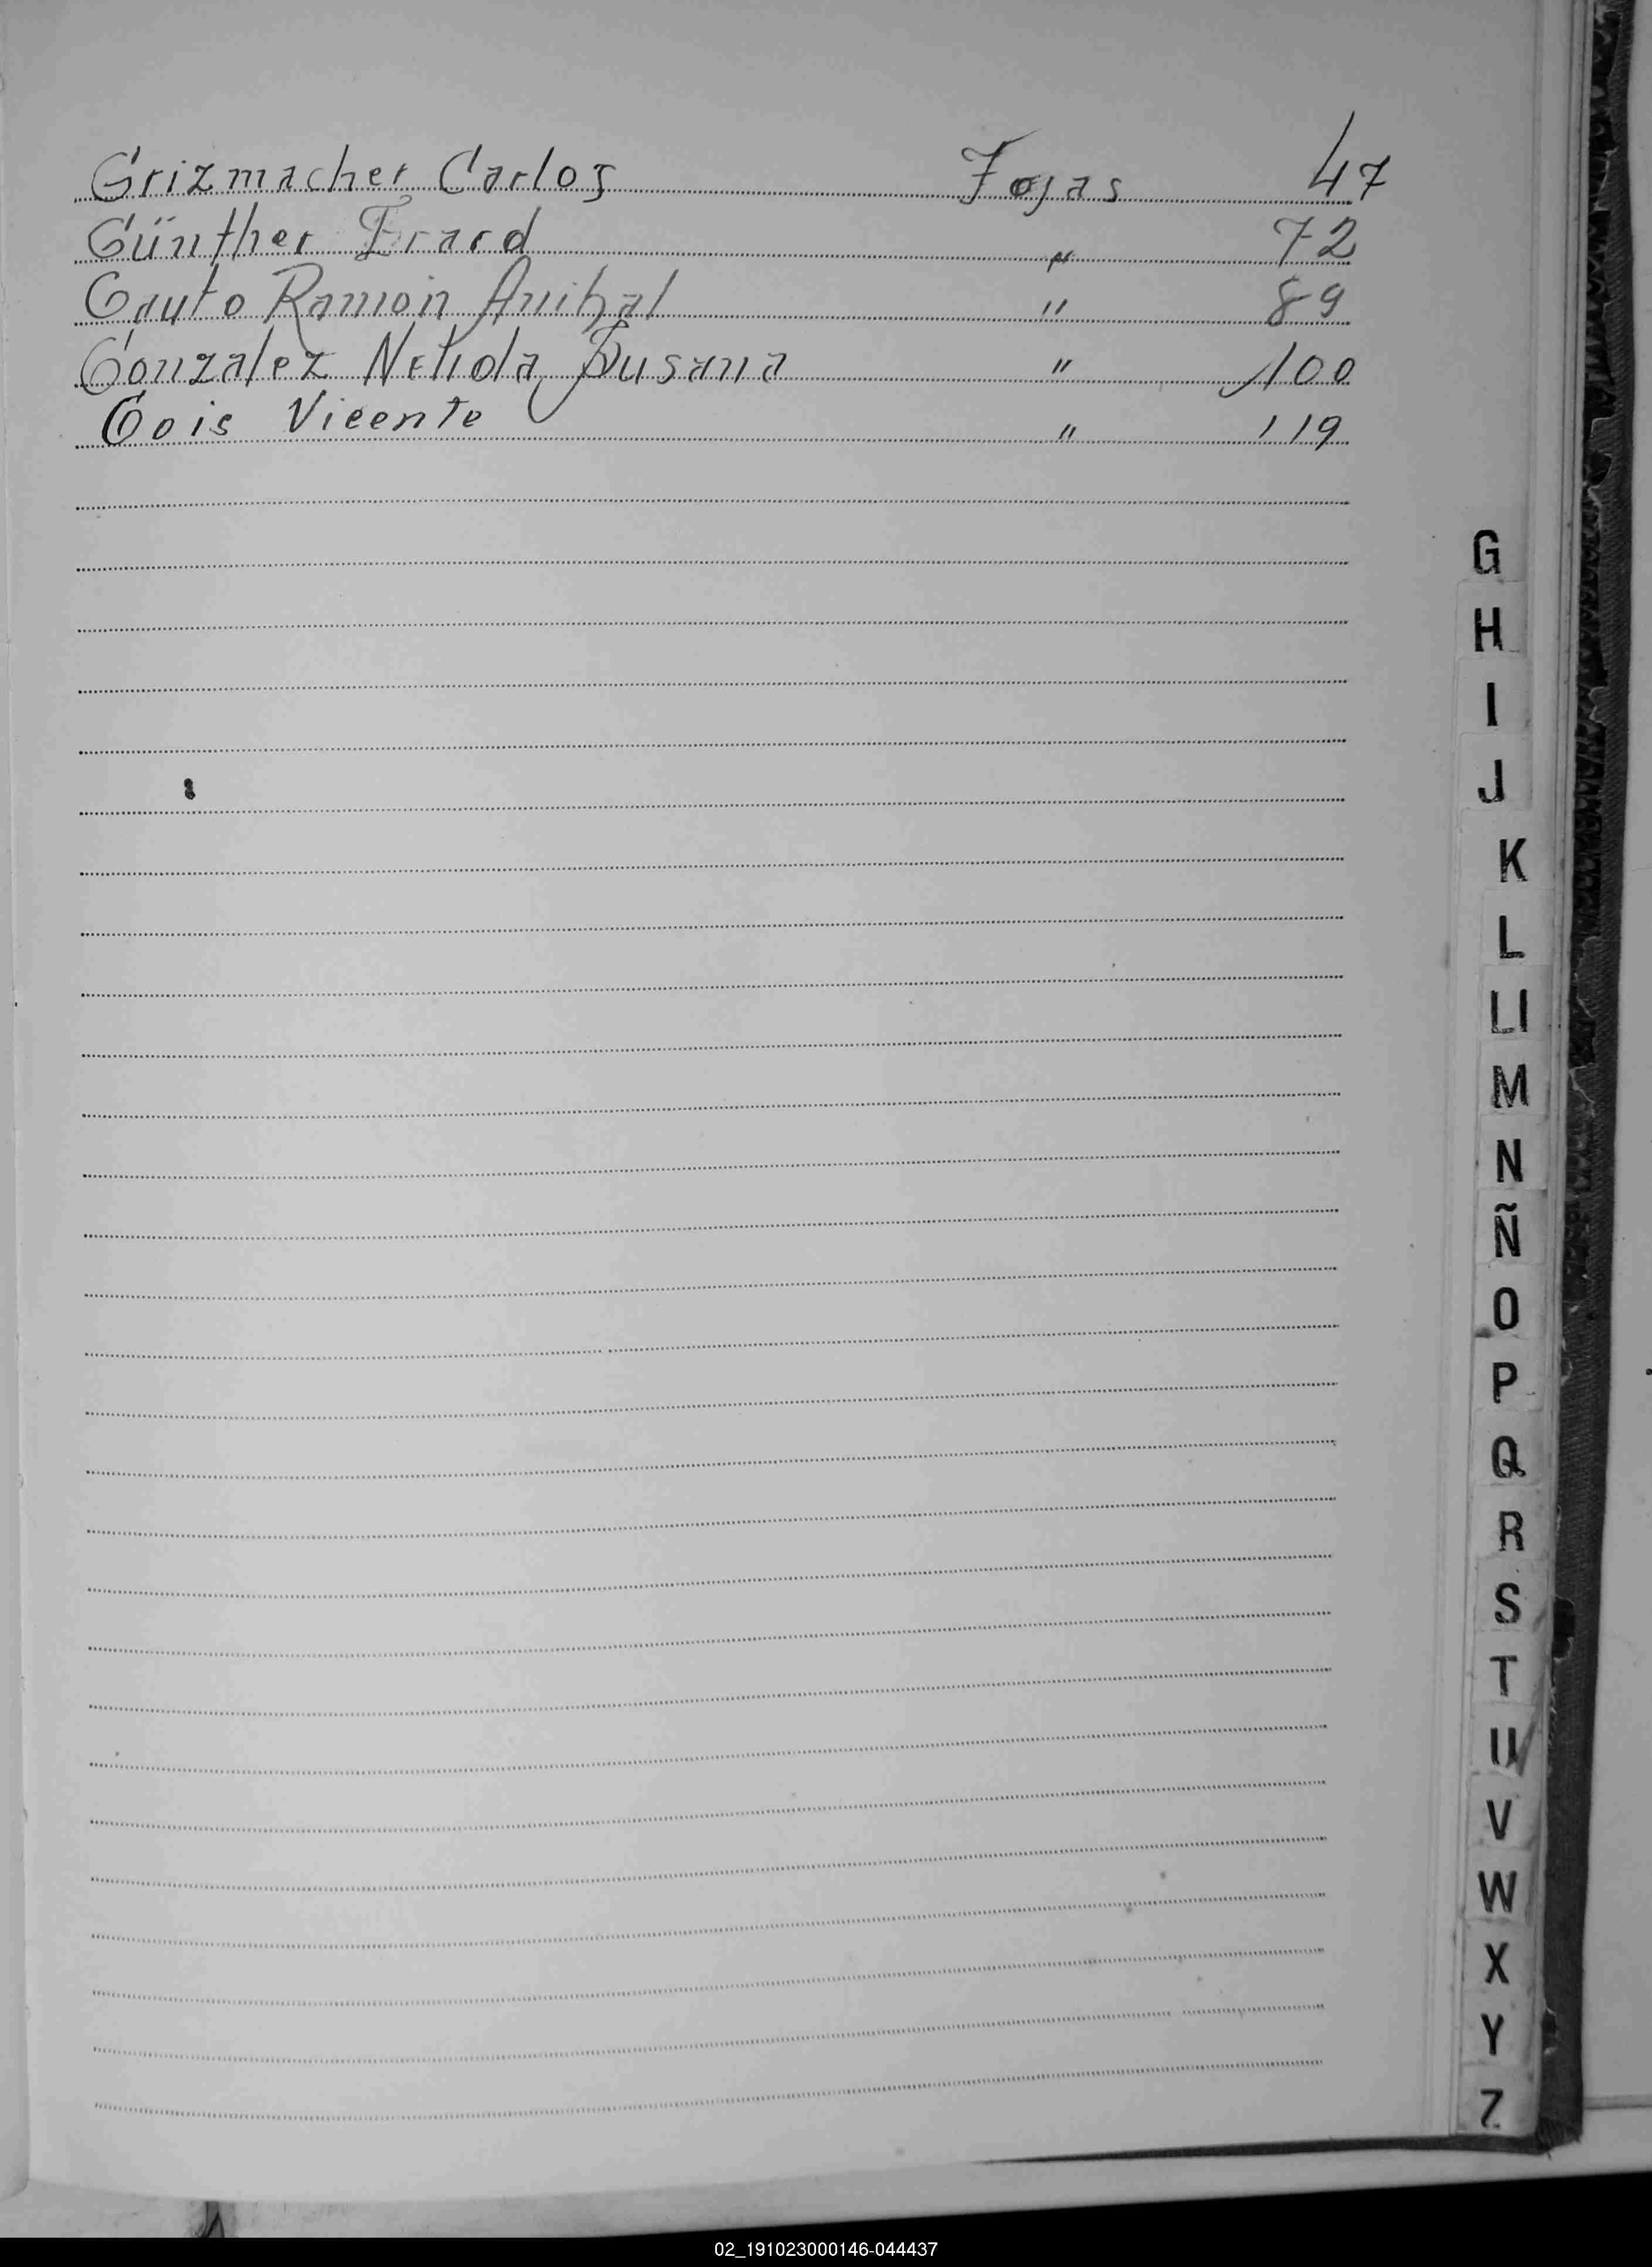 Grizmacher Carlos Fojas 47
Günther Erard " 72
Gauto Ramón Anibal " 89
Gonzalez Nelida Susana " 100
Gois Vicente " 119
G
H
I
J
K
L
Ll
M
N
Ñ
O
P
Q
R
S
T
U
V
W
X
Y
Z
02_191023000146-044437